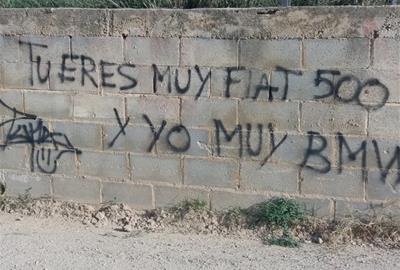 TU ERES MUY FIAT 500
Y YO MUY BMW